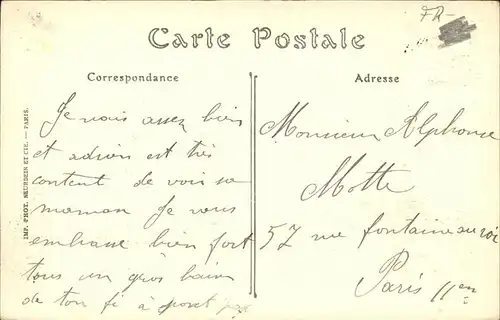 FR-
Carte Postale
Correspondance
Adresse
IMP. PHOT. NEURDEIN ET CIE. — PARIS.
Je vais assez bien
et adrien est très
content de voir sa
maman Je vous
embrasse bien fort
tous un gros baiser
de ton fi à
Monsieur Alphonse
Motte
57 rue fontaine au roi
Paris 11em